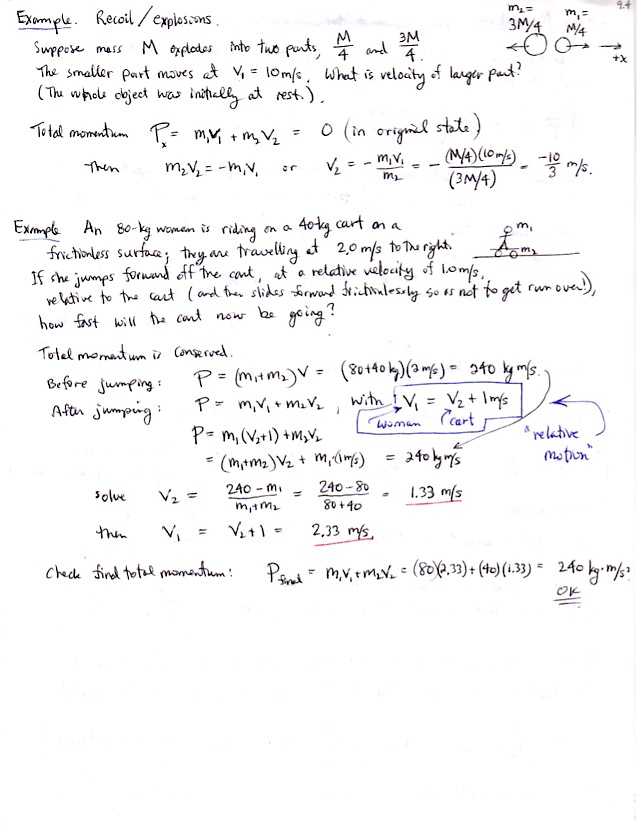 9.4
Example. Recoil / explosions.
m₂ = 3M/4
m₁ = M/4
+x
Suppose mass M explodes into two parts, M/4 and 3M/4.
The smaller part moves at V₁ = 10 m/s. What is velocity of larger part?
(The whole object was initially at rest.)
Total momentum Pₓ = m₁V₁ + m₂V₂ = 0 (in original state)
Then m₂V₂ = -m₁V₁ or V₂ = - m₁V₁/m₂ = - (M/4)(10 m/s)/(3M/4) = -10/3 m/s.
Example An 80-kg woman is riding on a 40-kg cart on a
frictionless surface; they are travelling at 2.0 m/s to the right.
m₁
m₂
If she jumps forward off the cart, at a relative velocity of 1.0 m/s,
relative to the cart (and then slides forward frictionlessly so as not to get run over!),
how fast will the cart now be going?
Total momentum is conserved.
Before jumping: P = (m₁+m₂)V = (80+40 kg)(2 m/s) = 240 kg m/s.
After jumping: P = m₁V₁ + m₂V₂, with V₁ = V₂ + 1 m/s
woman cart
"relative motion"
P = m₁(V₂+1) + m₂V₂
= (m₁+m₂)V₂ + m₁·(1 m/s) = 240 kg m/s
solve V₂ = 240 - m₁/m₁+m₂ = 240-80/80+40 = 1.33 m/s
then V₁ = V₂+1 = 2.33 m/s.
Check final total momentum: P final = m₁V₁ + m₂V₂ = (80)(2.33) + (40)(1.33) = 240 kg·m/s?
OK